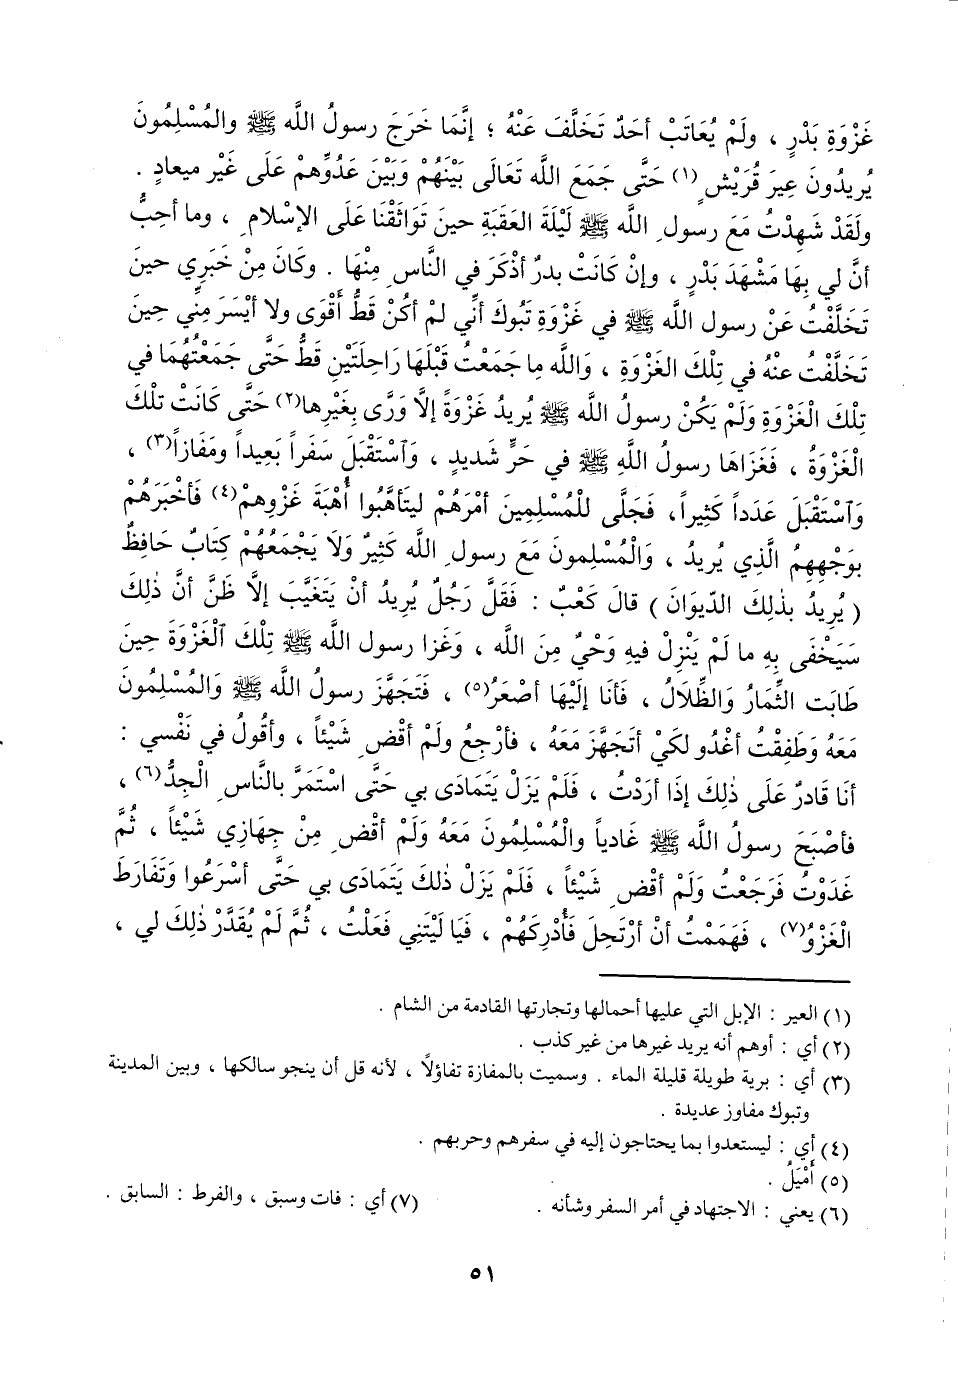 غَزْوَةِ بَدْرٍ ، ولَمْ يُعَاتَبْ أحَدٌ تَخَلَّفَ عَنْهُ ؛ إنَّمَا خَرَجَ رسولُ الله ﷺ والمُسْلِمُونَ
يُريدُونَ عِيرَ قُرَيْشٍ(١) حَتَّى جَمَعَ الله تَعَالَى بَيْنَهُمْ وَبَيْنَ عَدُوِّهمْ عَلَى غَيْر ميعادٍ .
ولَقَدْ شَهِدْتُ مَعَ رسولِ الله ﷺ لَيْلَةَ العَقَبَةِ حينَ تَوَاثَقْنَا عَلَى الإسْلامِ ، وما أحِبُّ
أنَّ لي بِهَا مَشْهَدَ بَدْرٍ ، وإنْ كَانَتْ بدرٌ أذْكَرَ في النَّاسِ مِنْهَا . وكَانَ مِنْ خَبَرِي حينَ
تَخَلَّفْتُ عَنْ رسول الله ﷺ في غَزْوَةِ تَبُوكَ أنِّي لم أكُنْ قَطُّ أَقْوَى ولا أيْسَرَ مِنِّي حِينَ
تَخَلَّفْتُ عنْهُ في تِلْكَ الغَزْوَةِ ، وَالله ما جَمَعْتُ قَبْلَها رَاحِلَتَيْنِ قَطُّ حَتَّى جَمَعْتُهُمَا في
تِلْكَ الْغَزْوَةِ وَلَمْ يَكُنْ رسولُ الله ﷺ يُريدُ غَزْوَةً إلَّا وَرَّى بِغَيْرِها(٢) حَتَّى كَانَتْ تلْكَ
الْغَزْوَةُ ، فَغَزَاهَا رسولُ اللهِ ﷺ في حَرٍّ شَديدٍ ، وَٱسْتَقْبَلَ سَفَراً بَعِيداً ومَفَازاً(٣) ،
وَٱسْتَقْبَلَ عَدَداً كَثِيراً، فَجَلَّى للْمُسْلِمِينَ أمْرَهُمْ ليَتَأهَّبُوا أُهْبَةَ غَزْوِهمْ(٤) فَأخْبَرَهُمْ
بوَجْهِهِمُ الَّذِي يُريدُ ، وَالْمُسْلِمونَ مَعَ رسولِ الله كَثيرٌ وَلَا يَجْمَعُهُمْ كِتَابٌ حَافِظٌ
( يُريدُ بذٰلِكَ الدّيوَانَ ) قالَ كَعْبٌ : فَقَلَّ رَجُلٌ يُريدُ أنْ يَتَغَيَّبَ إلَّا ظَنَّ أنَّ ذٰلِكَ
سَيَخْفَى بِهِ ما لَمْ يَنْزِلْ فيهِ وَحْيٌ مِنَ الله ، وَغَزا رسول الله ﷺ تِلْكَ ٱلْغَزْوَةَ حِينَ
طَابَت الثِّمَارُ وَالظِّلَالُ ، فَأنَا إلَيْهَا أصْعَرُ(٥) ، فَتَجَهَّزَ رسولُ الله ﷺ وَالمُسْلِمُونَ
مَعَهُ وَطَفِقْتُ أغْدُو لكَيْ أتَجَهَّزَ مَعَهُ ، فأرْجِعُ ولَمْ أقْضِ شَيْئاً ، وأقُولُ في نَفْسي :
أنا قَادرٌ عَلَى ذٰلِكَ إذَا أرَدْتُ ، فَلَمْ يَزَلْ يَتَمَادَى بي حَتَّى اسْتَمَرَّ بالنَّاسِ الْجِدُّ(٦) ،
فأصْبَحَ رسولُ الله ﷺ غَادياً والْمُسْلِمُونَ مَعَهُ وَلَمْ أقْضِ مِنْ جِهَازِي شَيْئاً ، ثُمَّ
غَدَوْتُ فَرَجَعْتُ وَلَمْ أقْضِ شَيْئاً ، فَلَمْ يَزَلْ ذٰلكَ يَتَمَادَى بي حَتَّى أسْرَعُوا وَتَفَارَطَ
الْغَزْوُ(٧) ، فَهَمَمْتُ أنْ أرْتَحِلَ فَأُدْرِكَهُمْ ، فَيَا لَيْتَنِي فَعَلْتُ ، ثُمَّ لَمْ يُقَدَّرْ ذٰلِكَ لي ،
(١) العير : الإبل التي عليها أحمالها وتجارتها القادمة من الشام .
(٢) أي : أوهم أنه يريد غيرها من غير كذب .
(٣) أي : برية طويلة قليلة الماء . وسميت بالمفازة تفاؤلًا ، لأنه قل أن ينجو سالكها ، وبين المدينة
وتبوك مفاوز عديدة .
(٤) أي : ليستعدوا بما يحتاجون إليه في سفرهم وحربهم .
(٥) أَمْيَلُ .
(٦) يعني : الاجتهاد في أمر السفر وشأنه . (٧) أي : فات وسبق ، والفرط : السابق .
٥١